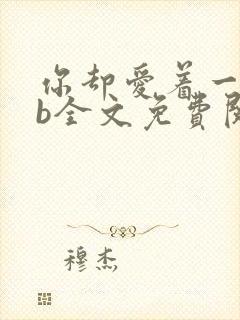 你却爱着一
b全文免费阅
穆杰